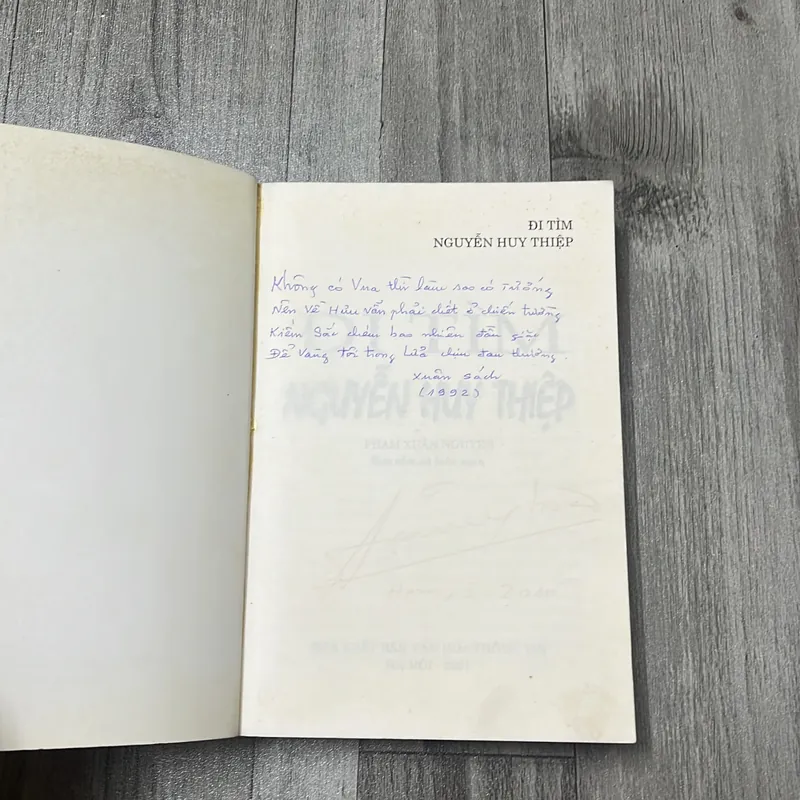 ĐI TÌM
NGUYỄN HUY THIỆP
Không có Vua thì làm sao có Tướng
Nên Về Hưu vẫn phải chết ở chiến trường
Kiếm Sắc chém bao nhiên đầu giặc
Để Vàng tôi trong Lửa chịu đau thương
Xuân Sách
(1992)
NGUYỄN HUY THIỆP
PHẠM XUÂN NGUYÊN